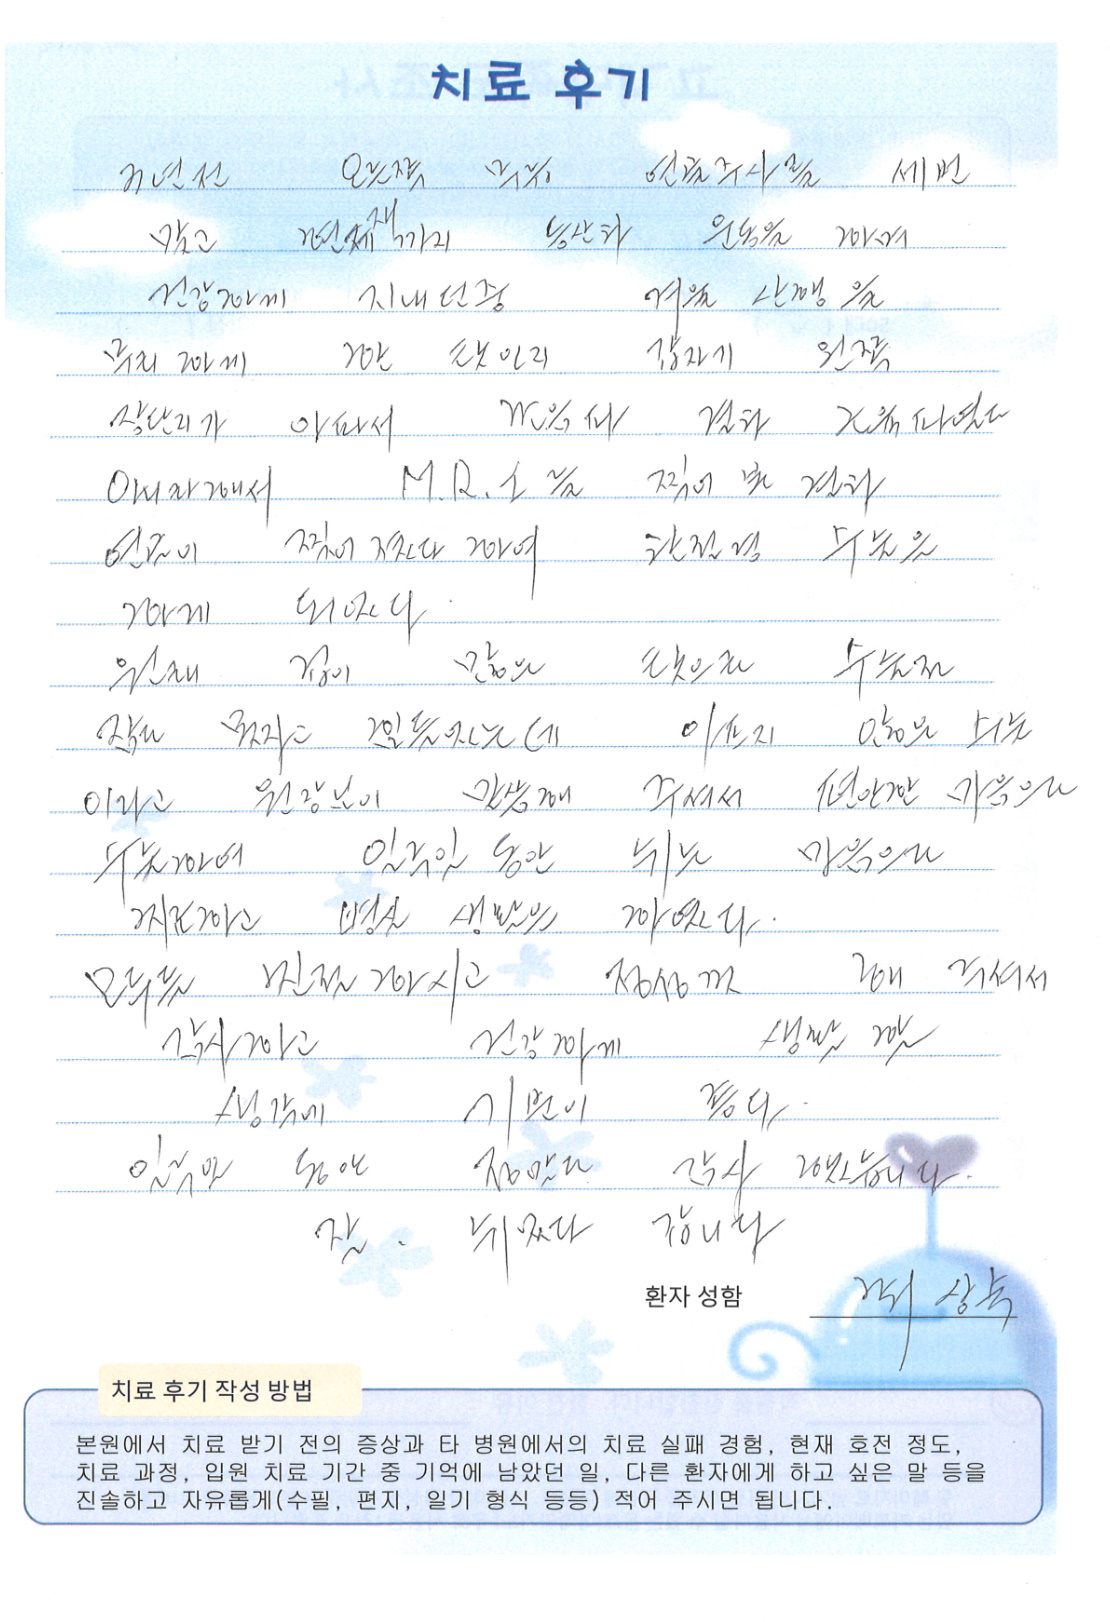 치료 후기
년전 오른쪽 무릎 연골주사를 세번
맞고 현재까지 등산과 운동을 하며
건강하게 지내던중 겨울 산행을
무리하게 한 탓인지 갑자기 왼쪽
장단지가 아파서 결과
입원해서 M.R.I 를 찍어 본 결과
연골이 찢어 졌다 하여 관절경 수술을
하게 되었다.
원래 겁이 많은 탓으로 수술전
잠도 못자고 힘들었는데 아프지 않은 수술
이라고 원장님이 말씀해 주셔서 편안한 마음으로
수술하여 일주일 동안 쉬는 마음으로
치료하고 병실 생활을 하였다.
모두들 친절하시고 정성껏 해 주셔서
감사하고 건강하게 생활 할
생각에 기분이 좋다.
일주일 동안 정말로 감사 했습니다.
잘. 쉬었다 갑니다
환자 성함 상
치료 후기 작성 방법
본원에서 치료 받기 전의 증상과 타 병원에서의 치료 실패 경험, 현재 호전 정도,
치료 과정, 입원 치료 기간 중 기억에 남았던 일, 다른 환자에게 하고 싶은 말 등을
진솔하고 자유롭게(수필, 편지, 일기 형식 등등) 적어 주시면 됩니다.